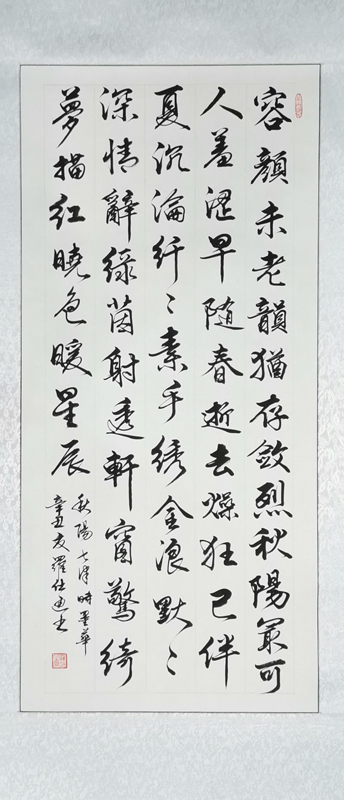 容顏未老韻猶存斂烈秋陽最可
人羞澀早隨春逝去燥狂已伴
夏沉淪纤々素手绣金浪默々
深情辭绿茵射透軒窗驚绮
夢描红曉色暖星辰
秋陽七律時墨華
辛丑友羅仕